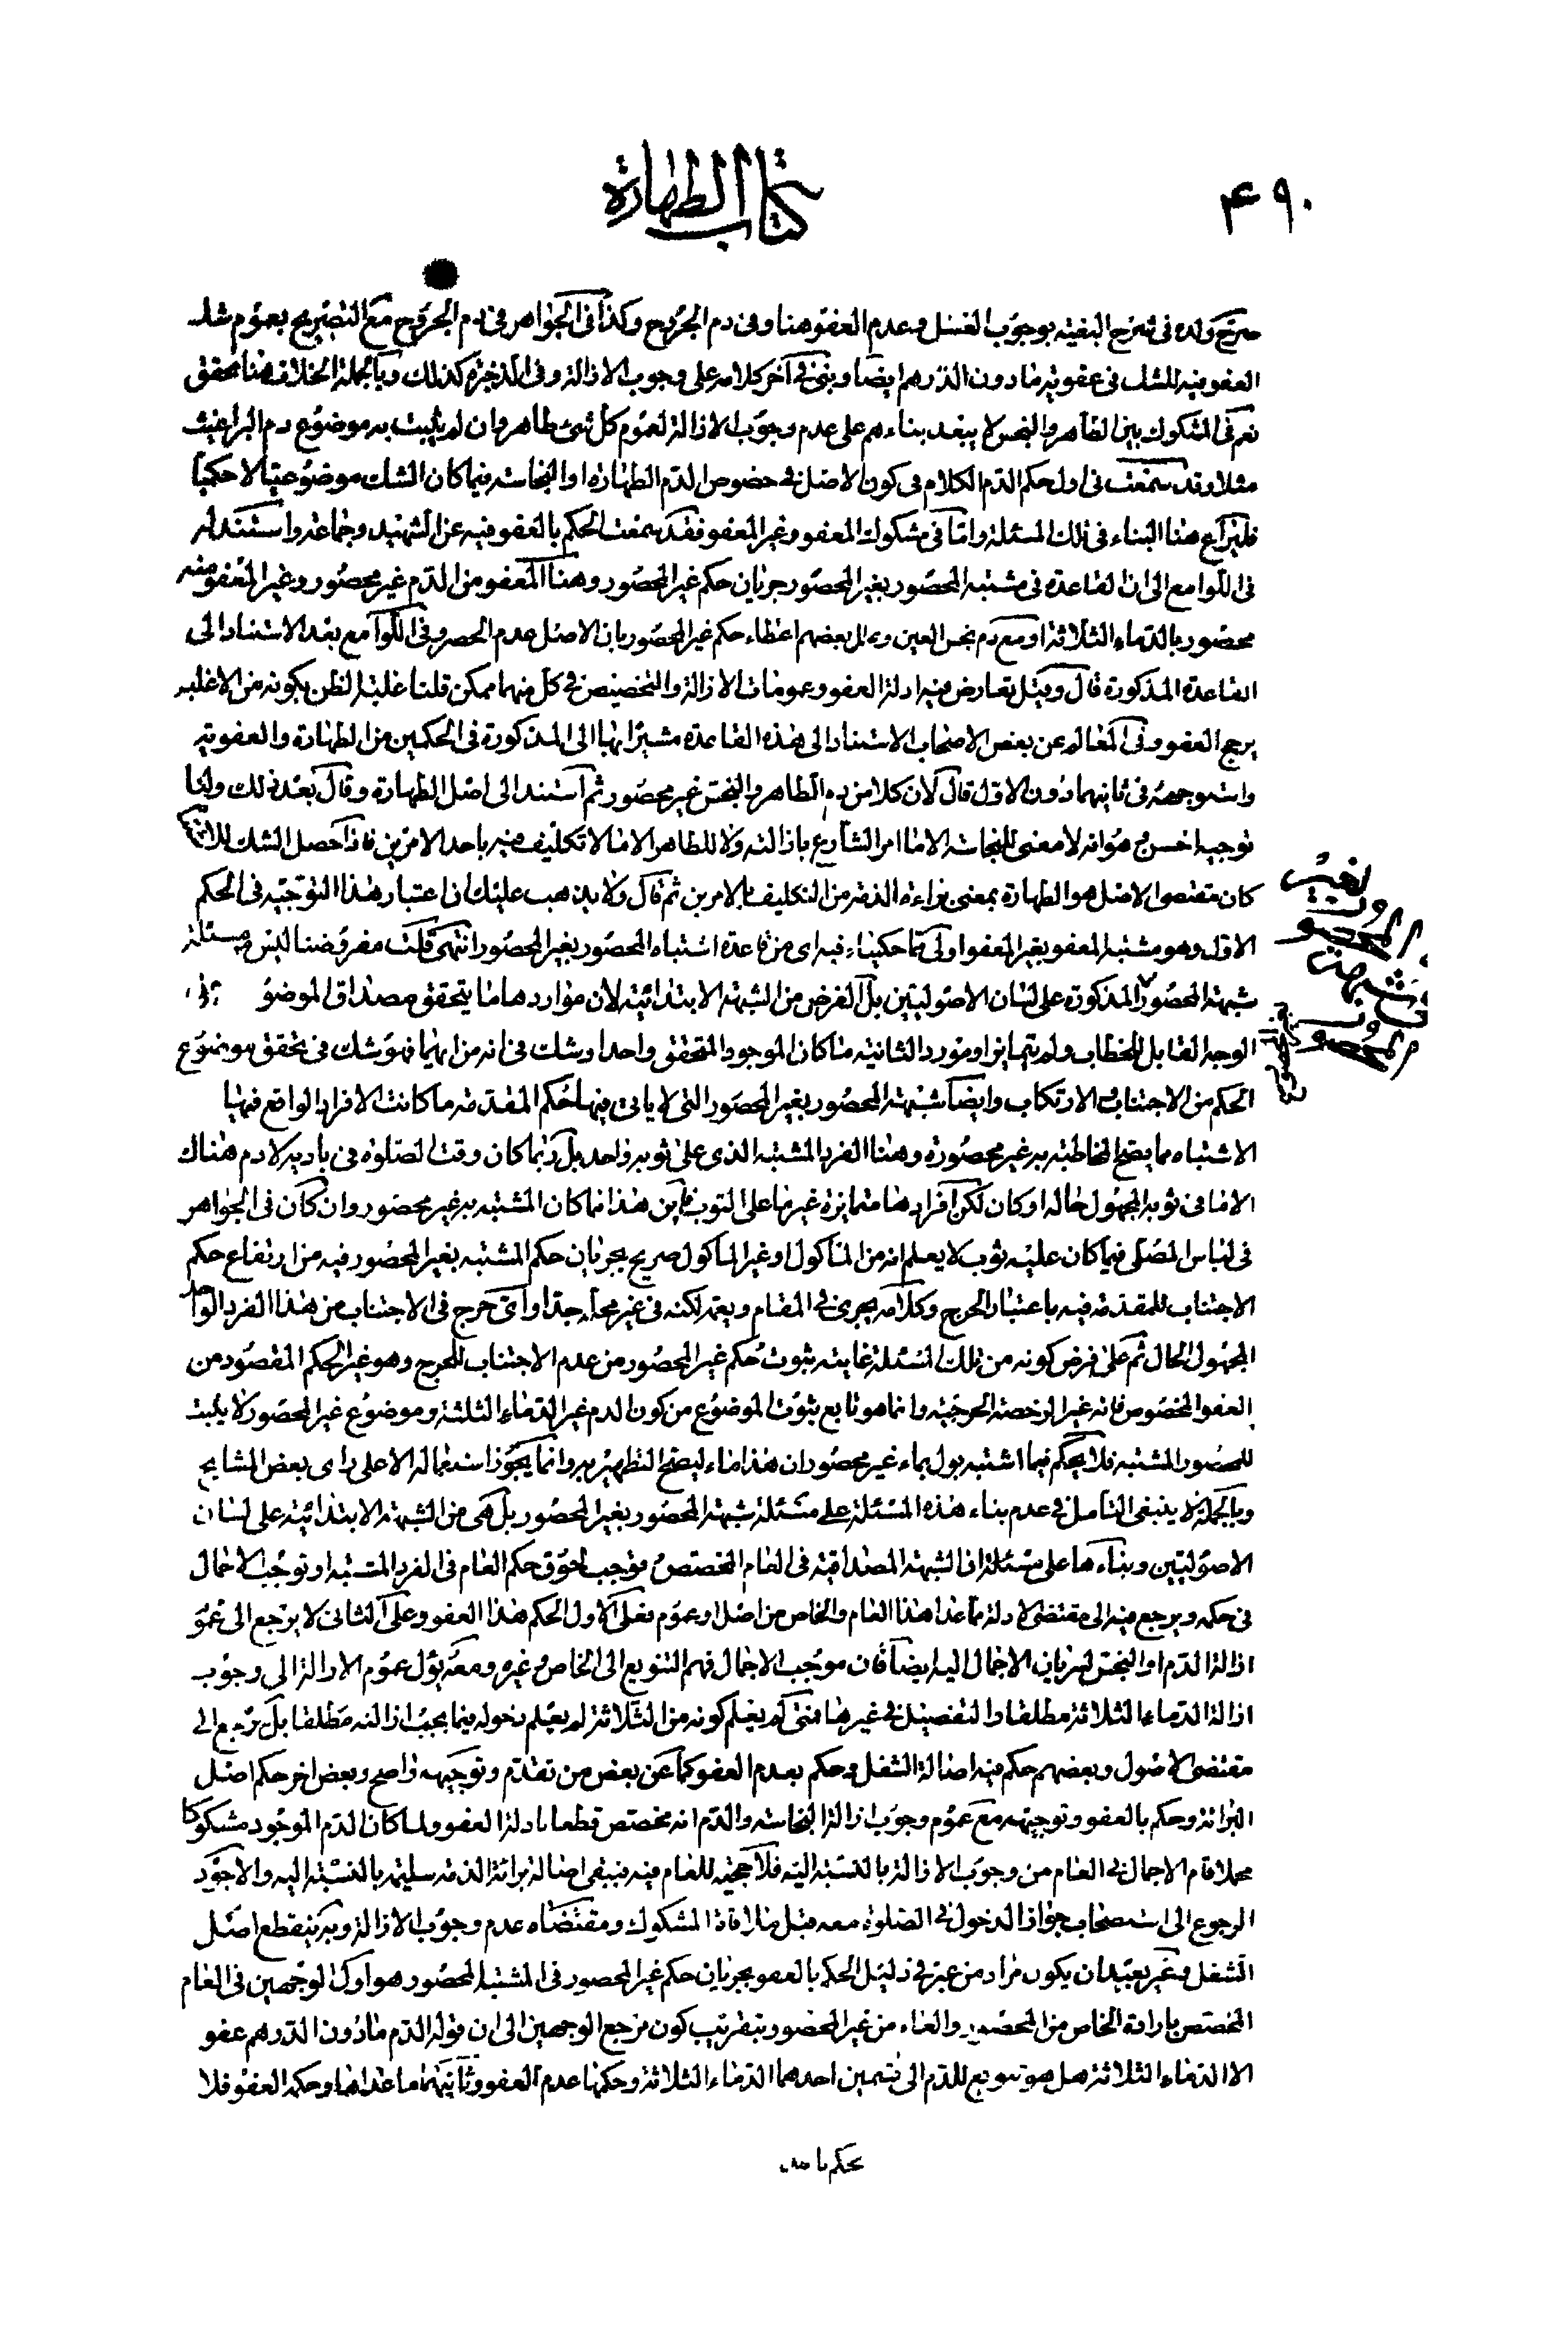 ۴۹۰
كتاب الطهارة
صرّح ولده فى شرح البغيته بوجوب الغسل وعدم العفو هنا وفى دم الجروح وكذا فى الجواهر فى دم الجروح مع التصريح بعموم
العفو فيه للشك فى عفويته مادون الدرهم ايضا وبنى فى آخر كلامه على وجوب الازالة وفى الذخيرة كذلك وبالجملة الخلاف هنا محقق
نعم فى المشكوك بين الطاهر والنجس لا يبعد بناءهم على عدم وجوب الازالة لعموم كل شئ طاهر وان لم يثبت به موضوع دم البراغيث
مثلا وقد سمعت فى اول حكم الدم الكلام فى كون الاصل فى خصوص الدم الطهارة او النجاسة فيما كان الشك موضوعيّا لا حكميّا
فليراع هنا البناء فى تلك المسئلة وامّا فى مشكوك المعفو وغير المعفو فقد سمعت الحكم بالعفو فيه عن الشهيد وجماعة واستند له
فى اللوامع الى ان القاعدة فى مشتبه المحصور بغير المحصور جريان حكم غير المحصور وهنا المعفو من الدم غير محصور وغير المعفو منه
محصور بالدماء الثلاثة او مع دم نجس العين وعلل بعضهم اعطاء حكم غير المحصور بان الاصل عدم الحصر وفى اللوامع بعد الاستناد الى
القاعدة المذكورة قال وقيل تعارض فيه ادلة العفو وعمومات الازالة والتخصيص فى كل منهما ممكن قلنا غلبة الظن بكونه من الاغلب
يرجح العفو وفى المعالم عن بعض الاصحاب الاستناد الى هذه القاعدة مشيرا بها الى المذكورة فى الحكمين من الطهارة والعفويه
واستوجهه فى ثانيهما دون الاول قال لان كلا من دم الطاهر والنجس غير محصور ثم استند الى اصل الطهارة وقال بعد ذلك ولنا
توجيه احسن هو انه لا معنى للنجاسة الا ما امر الشارع بازالته ولا للطاهر الا ما لا تكليف فيه باحد الامرين فاذا حصل الشك
كان مقتضى الاصل هو الطهارة بمعنى براءة الذمة من التكليف بالامرين ثم قال ولا يذهب عليك ان اعتبار هذا التوجيه فى الحكم
الاول وهو مشتبه المعفو بغير المعفو اولى مما حكيناه فيه اى من قاعدة اشتباه المحصور بغير المحصور انتهى قلت مفروضنا ليس من مسئلة
شبهة المحصور المذكورة على لسان الاصوليين بل الفرض من الشبهة الابتدائية لان مواردها ما يتحقق مصداق الموضوع
الوجه القابل للخطاب ولم يتمايزا ومورد الثانية ما كان الموجود المتحقق واحدا وشك فى انه من ايهما فهو شك فى تحقق موضوع
الحكم من الاجتناب او الارتكاب وايضا شبهة المحصور بغير المحصور التى لا ياتى فيها حكم المقدمة ما كانت الافراد الواقع فيها
الاشتباه مما يصح المخاطبة به غير محصورة وهنا الفرد المشتبه الذى على ثوبه واحد بل ربما كان وقت الصلوة فى بادية لا دم هناك
الا ما فى ثوبه المجهول حاله او كان لكن افرادها متمايزة غير ما على الثوب فاين هذا مما كان المشتبه به غير محصور وان كان فى الجواهر
فى لباس المصلى فيما كان عليه ثوب لا يعلم انه من المأكول او غير المأكول صريح بجريان حكم المشتبه بغير المحصور فيه من ارتفاع حكم
الاجتناب للمقدمة فيه باعتبار الحرج وكلامه يجرى فى المقام ويعمه لكنه فى غير محله جدّا واى حرج فى الاجتناب من هذا الفرد الواحد
المجهول الحال ثم على فرض كونه من تلك المسئلة غايته ثبوت حكم غير المحصور من عدم الاجتناب للحرج وهو غير الحكم المقصود من
العفو المخصوص فانه غير الرخصة الحرجية وانما هو تابع ثبوت الموضوع من كون الدم غير الدماء الثلثة وموضوع غير المحصور لا يثبت
للمحصور المشتبه فلا يحكم فيما اشتبه بول بماء غير محصور ان هذا ماء ليصح التطهير به وانما يجوز استعماله الا على راى بعض المشايخ
وبالجملة لا ينبغى التأمل فى عدم بناء هذه المسئلة على مسئلة شبهة المحصور بغير المحصور بل هى من الشبهة الابتدائية على لسان
الاصوليين وبناءها على مسئلة ان الشبهة المصداقية فى العام المخصص موجب لحوق حكم العام فى الفرد المشتبه او توجب الاجمال
فى حكمه ويرجع فيه الى مقتضى الادلة مما عدا هذا العام والخاص من اصل او عموم فعلى الاول الحكم هذا العفو وعلى الثانى لا يرجع الى عموم
ازالة الدم او النجس لسريان الاجمال اليه ايضا فان موجب الاجمال فهم التنويع الى الخاص وغيره ومعه يؤل عموم الازالة الى وجوب
ازالة الدماء الثلاثة مطلقا والتفصيل فى غيرها فمتى لم يعلم كونه من الثلاثة لم يعلم دخوله فيما يجب ازالته مطلقا بل يرجع الى
مقتضى الاصول وبعضهم حكم فيه اصالة الشغل وحكم بعدم العفو كما عن بعض من تقدم وتوجيهه واضح وبعض اخر حكم اصل
البرائة وحكم بالعفو وتوجيهه مع عموم وجوب ازالة النجاسة والدم انه مخصص قطعا بادلة العفو ولما كان الدم الموجود مشكوكا
محلا قام الاجمال فى العام من وجوب الازالة بالنسبة اليه فلا حجية للعام فيه فتبقى اصالة برائة الذمة سليمة بالنسبة اليه والاجود
الرجوع الى استصحاب جواز الدخول فى الصلوة معه قبل ملاقاة المشكوك ومقتضاه عدم وجوب الازالة وبه ينقطع اصل
الشغل وغير بعيد ان يكون مراد من عبر فى دليل الحكم بالعفو بجريان حكم غير المحصور فى المشتبه المحصور هو اول الوجهين فى العام
المخصص بارادة الخاص من المحصور والعام من غير المحصور بتقريب كون مرجع الوجهين الى ان قوله الدم مادون الدرهم عفو
الا الدماء الثلاثة هل هو تنويع للدم الى قسمين احدهما الدماء الثلاثة وحكمها عدم العفو وثانيهما ما عداها وحكمه العفو فلا
يحكم